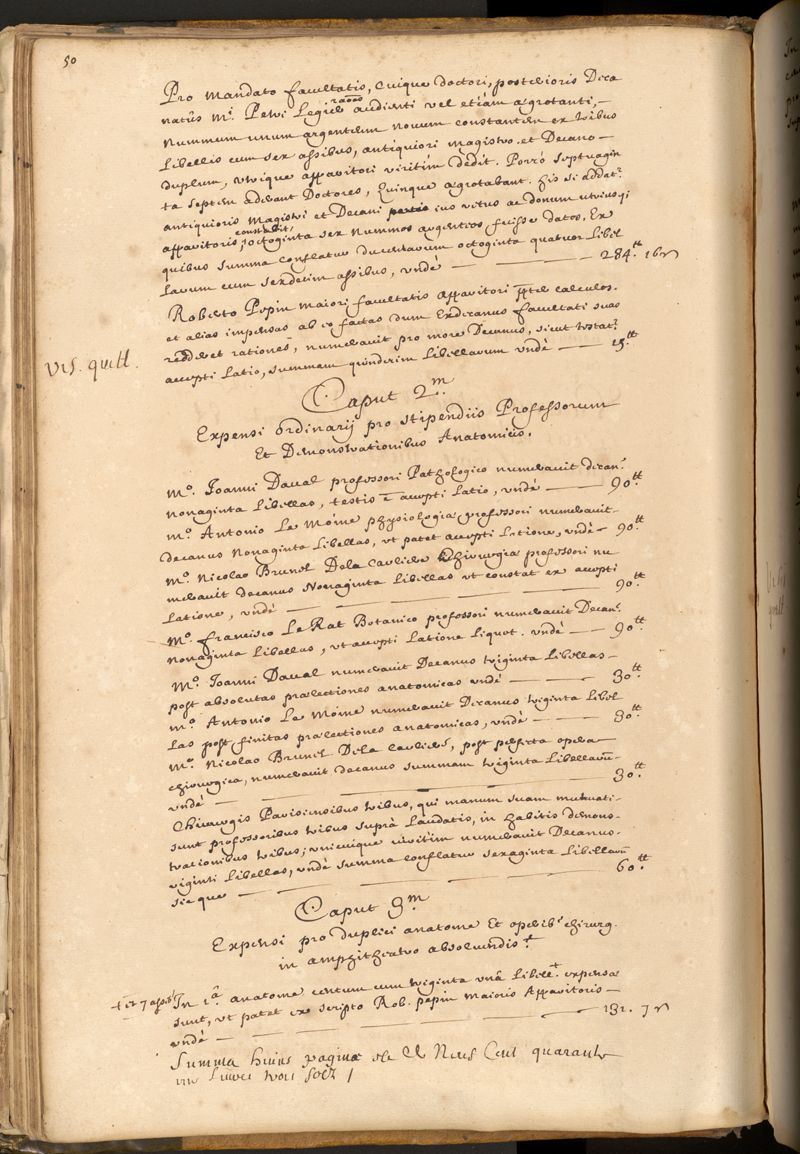 50
Pro mandato facultatis, cuique doctori, posterioris Deca
natûs Mi. Petri Legier rationes audienti vel etiam ægrotanti,
Nummum unum argenteum novum constantem ex tribus
Libellis cum sex assibus, antiquiori magistro et Decano
duplum, utrique apparitori viritim dedit. Porrò septuagin
ta septem aderant Doctores, quinque ægrotabant. His si addat.r
antiquioris Magistri et Decani ius vetus ac donum utriusq;
apparitoris, constabit octoginta sex nummos argenteos fuisse datos, Ex
quibus summa conflatur ducentarum octoginta quatuor Libel
larum cum sexdecim assibus, undè 284.tt 16 s
Roberto Pepin maiori facultatis apparitori ppter calculos
et alias impensas ab eo factas dum Exdecanus facultati suas
redderet rationes, numeravit pro more Decanus, sicut testat.r
accepti Latio, summam quindecim Libellarum undè 15.tt
Vis. quitt.
Caput 2.m
Expensi ordinarij pro stipendiis Professorum
Et Demonstrationibus Anatomicis.
M.o Joanni Daval professori Pathologico numeravit decan.s
nonaginta Libellas, testis ē accepti Latio, undè 90.tt
M.o Antonio Le Moine physiologiæ professori numeravit
decanus Nonaginta Libellas, ut patet accepti Latione, undè 90.tt
M.o Nicolao Brunel Dela Carliere Chirurgiæ professori nu
meravit decanus Nonaginta Libellas ut constat ex accepti
Latione, undè 90.tt
M.o Francisco Le Rat Botanico professori numeravit Decan.s
nonaginta Libellas, ut accepti Latione Liquet. undè 90.tt
M.o Joanni Daval numeravit Decanus triginta Libellas
post absolutas prælectiones anatomicas undè 30.tt
M.o Antonio Le Moine numeravit Decanus triginta Libel
las post finitas prælectiones anatomicas, undè 30.tt
M.o Nicolao Brunel Dela Carliere, post perfecta opera
chirurgica, numeravit decanus summam triginta Libellarū
undè 30.tt
Chirurgis Parisiensibus tribus, qui manum suam mutuati
sunt professoribus tribus suprà Laudatis, in habitis demons
trationibus tribus, unicuique viritim numeravit Decanus
viginti Libellas, undè summa conflatur sexaginta Libellarū
sicque 60.tt
Caput 3.m
Expensi pro duplici anatome Et operib.s chirurg.
in amphitheatro absolvendis.
+ et 7 assib.s
In 1.â anatome centum cum triginta unâ Libell.+ expensæ
sunt, ut patet ex scripto Rob. pepin maioris Apparitoris
undè 131. 7 s
Summa huius paginæ est Neuf Cent quarante
une Livres trois solz